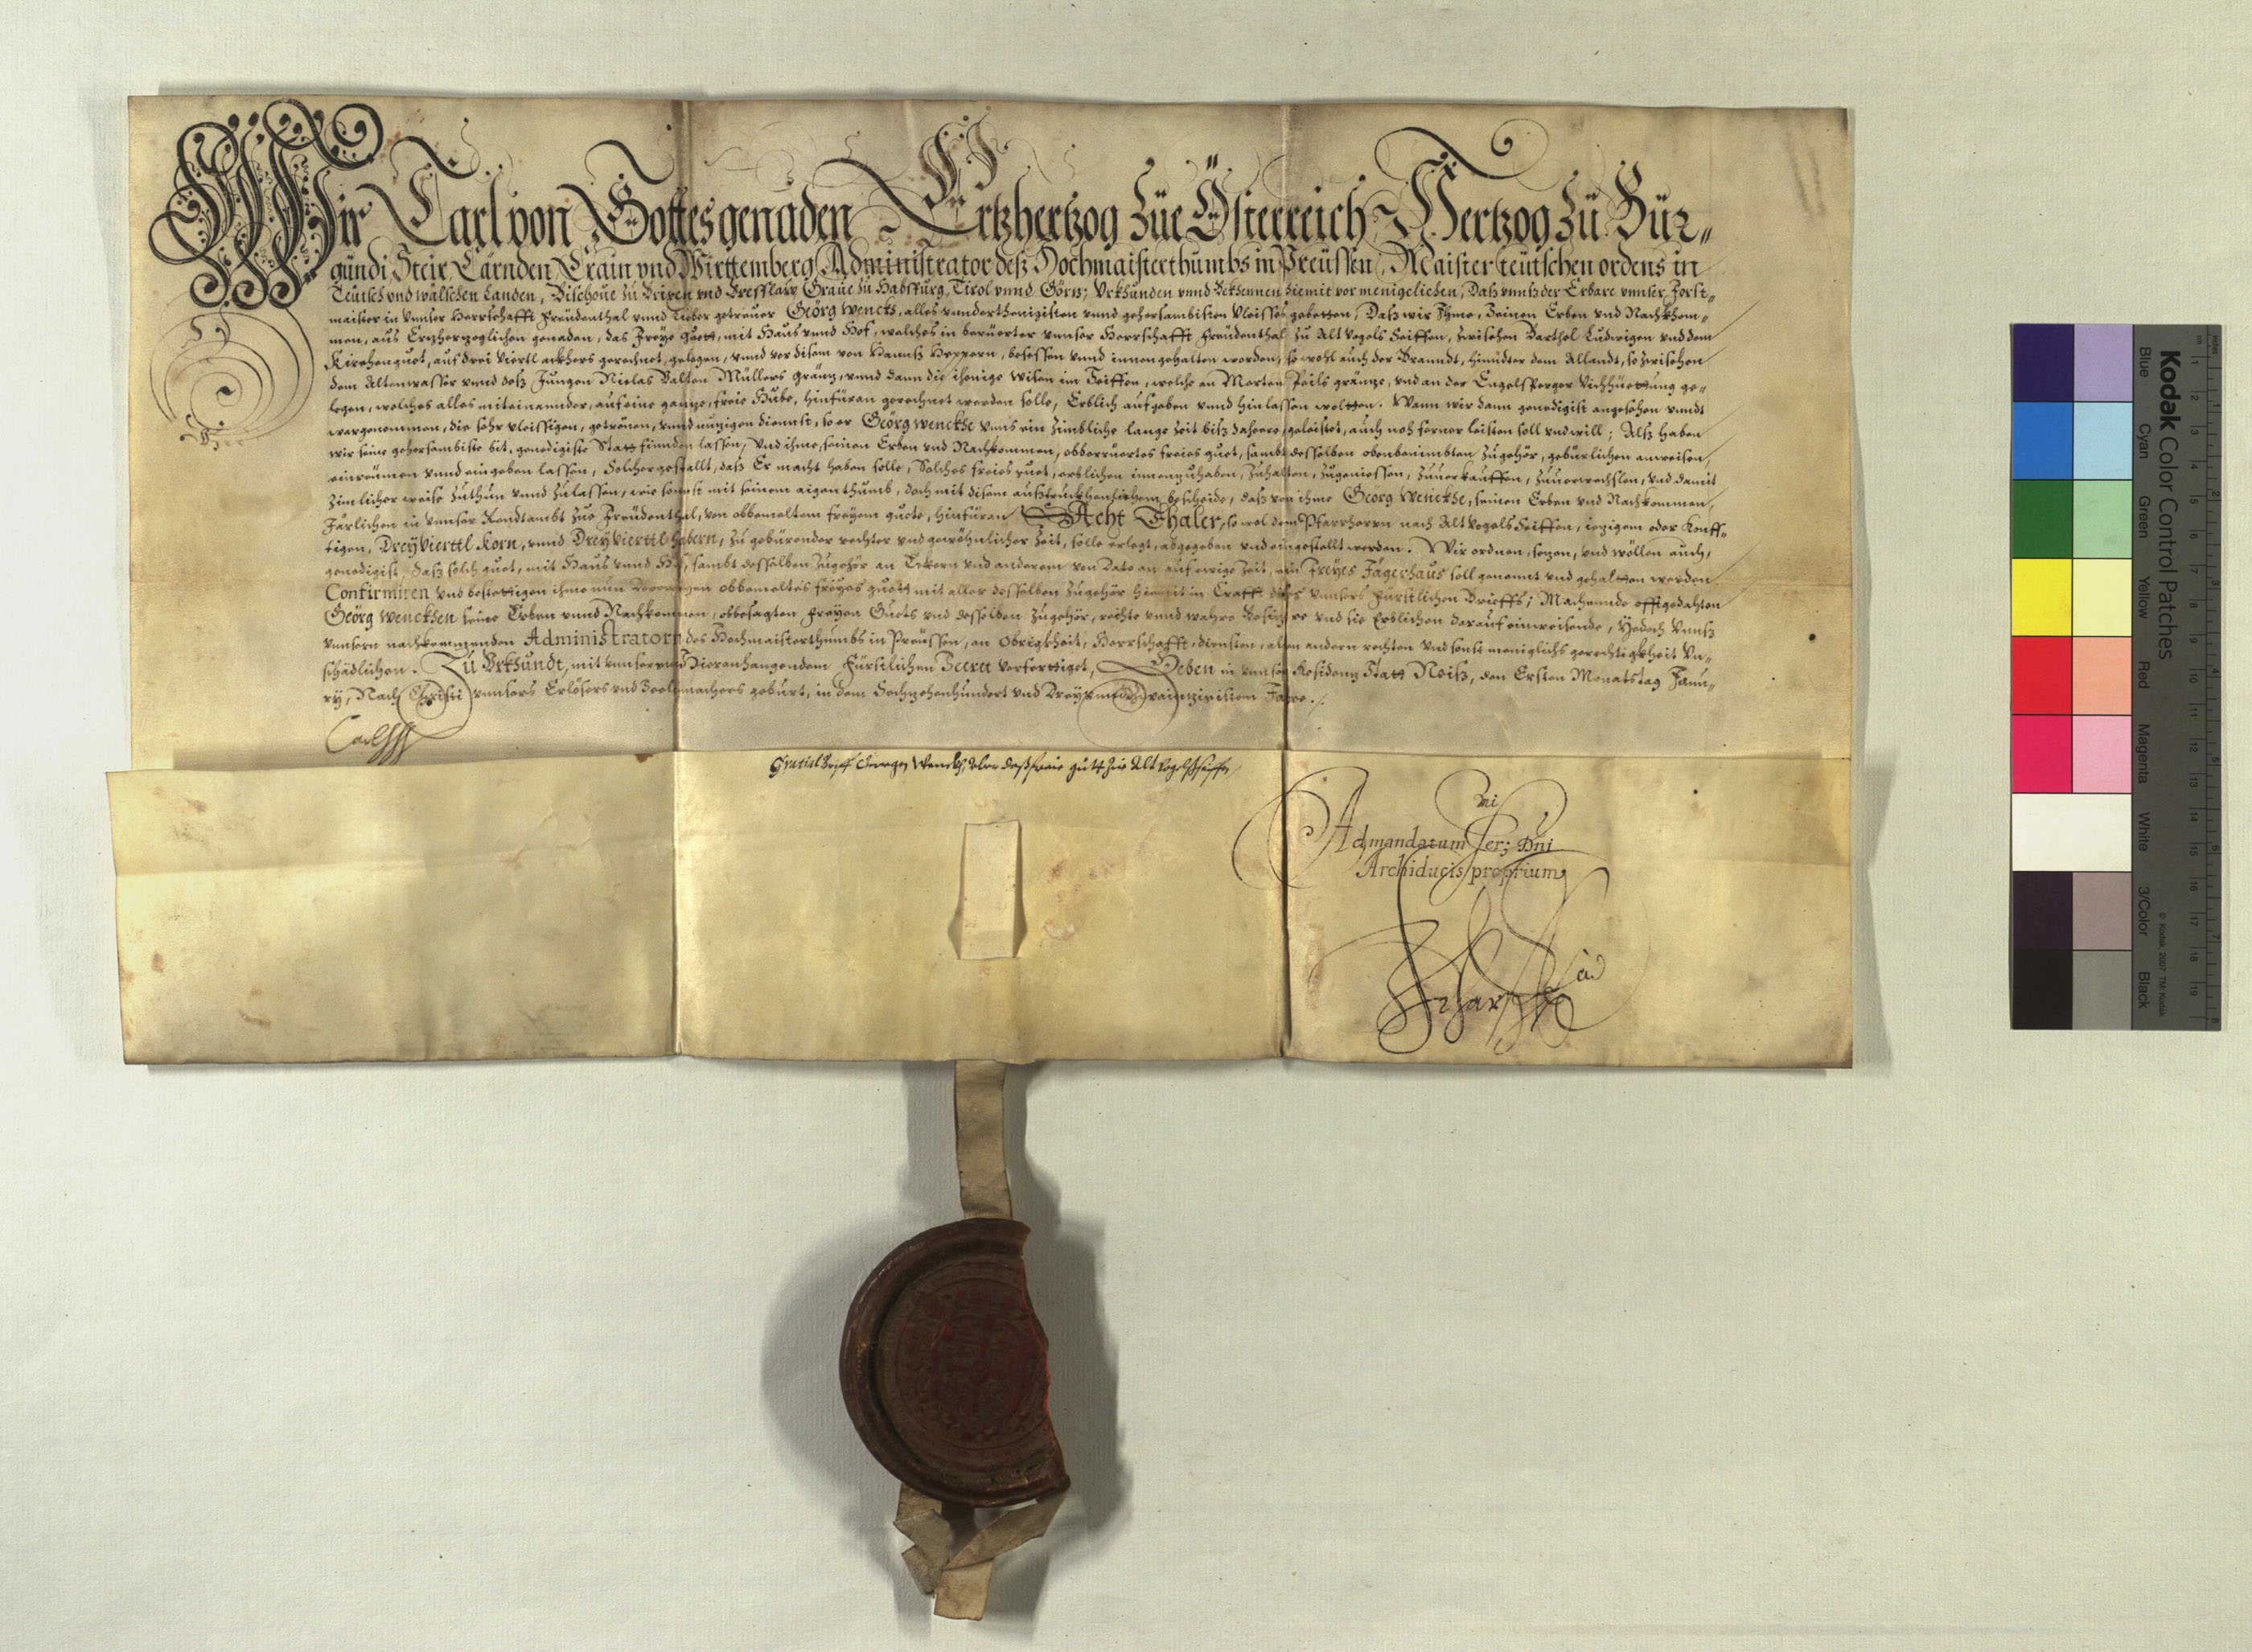 Wir Carl von Gottes genaden Ertzhertzog züe Österreich Hertzog zü Bür„
gündi Steir, Cärnden Crain vnd Wirttemberg Administrator deß Hochmaisterthumbs in Preüssen, Maister teütschen ordens in
Teütsch vnd wälschen Landen, Bischoue zu Brixen vnd Bresslaw Graue zu Habsburg, Tirol vnnd Görz; Vrkhunden vnnd Bekhennen hiemit vor menigelichen, Daß vnnß der Erbare vnnser Forst„
maister in vnnser Herrschafft Freüdenthal vnnd Lieber getreuer Geörg Wenckh, alles vnnderthenigisten vnnd gehorsambisten vleisses gebetten, Daß wir Ihme, Seinen Erben vnd Nachkhom„
men, aus Erzherzoglichen genaden, das Freye Guett, mit Haus vnnd Hof, welches in berüerter vnnser Herrschafft Freüdenthal zu Alt Vogels Seiffen, zwischen Barthol Ludwigen vnd dem
Kirchenguet, auf drei Viertl ackhers gerechnet, gelegen, vnnd vor disem von Hannß Heppern, besessen vnnd innengehalten worden, so wohl auch der Brandt, hinndter dem Allandt, so zwischen
dem Altenwasser vnnd deß Jungen Niclas Balten Müllers gränz, vnnd dann die ihenige Wisen im Seiffen, welche an Merten Peils gränze, vnd an der Engelsperger Vichhüettung ge„
legen, welches alles miteinannder, auf eine ganze, freie Hube, hinfüran gerechnet werden solle, Erblich aufgeben vnnd hinlassen wolten. Wann wir dann genedigist angesehen vnndt
wargenommen, die sehr vleissigen, getreüen, vnnd nuzigen diennst, so er Geörg Wenckhe vnns ein zimbliche lange zeit biß dahero, geleistet, auch noch ferner leisten soll vnd will; Alß haben
wir seine gehorsambiste bit, genedigiste Statt finnden lassen, Vnd ihme, seinen Erben vnd Nachkommen, obberüertes freies guet, sambt desselben obenbenimbten zugehör, gebürlichen anweisen,
einreümen vnnd eingeben lassen, Solcher gestallt, daß Er macht haben solle, Solches freies guet, erblichen innenzuhaben, zuhalten, zugeniessen, zuuerkauffen, zuuerwechslen, vnd damit
zimlicher weise zuthun vnnd zulassen, wie sonnst mit seinem aigenthumb, doch mit disem außtruckhenlichem bescheide, daß von ihme Geörg Wenckhe, seinen Erben vnd Nachkommen,
Järlichen in vnnser Rendtambt zue Freüdenthal, von obbemeltem freyem guete, hinfüran Acht Thaler, so wol dem Pfarrherrn nach Alt Vogels Seiffen, iezigem oder konff„
tigen, Drey Vierttl Korn, vnnd Drey Vierttl habern, zu gebürender rechter vnd gewöhnlicher zeit, solle erlegt, abgegeben vnd eingestellt werden. Wir ordnen, sezen, vnd wöllen auch,
genedigist, daß solch guet, mit Haus vnnd Hof, sambt desselben zugehör an Eckern vnd anderem von Dato an auf ewige zeit, ein Freyes Jägerhaus soll genennt vnd gehalten werden
Confirmiren vnd bestettigen ihme nun derwegen obbemeltes freyes guett mit aller desselben zugehör hiemit in Crafft dises vnnsers Fürstlichen Brieffs; Machennde offtgedahten
Geörg Wenckhen seine Erben vnnd Nachkommen, obbesagten freyen Guets vnd desselben zugehör, rechte vnnd wahre Besizere vnd sie Erblichen darauf einweisende, Yedoch Vnnß
vnnsern nachkommenden Administratorn des Hochmaisterthumbs in Preüssen, an Obrigkheit, Herrschafft, diensten, allen andern rechten vnd sonst meniglichs gerechtigkheit Vn„
schädlichen. Zu Vrkhundt, mit vnnserm Hieranhangendem Fürstlichen Secret verferttiget, Geben in vnnser Residenz Statt Neiß, den Ersten Monatstag Janu„
ry, Nach Christi vnnsers Erlösers vnd Seeligmachers geburt, in dem Sechzehenhundert vnd Drey vnnd zwainzigistem Jahre./.
Carl
Ad mandatum Ser: Dni
Archiducis proprium
Kodak Color Control Patches
© Kodak, 2007 TM: Kodak
Blue Cyan Green Yellow Red Magenta White 3/Color Black